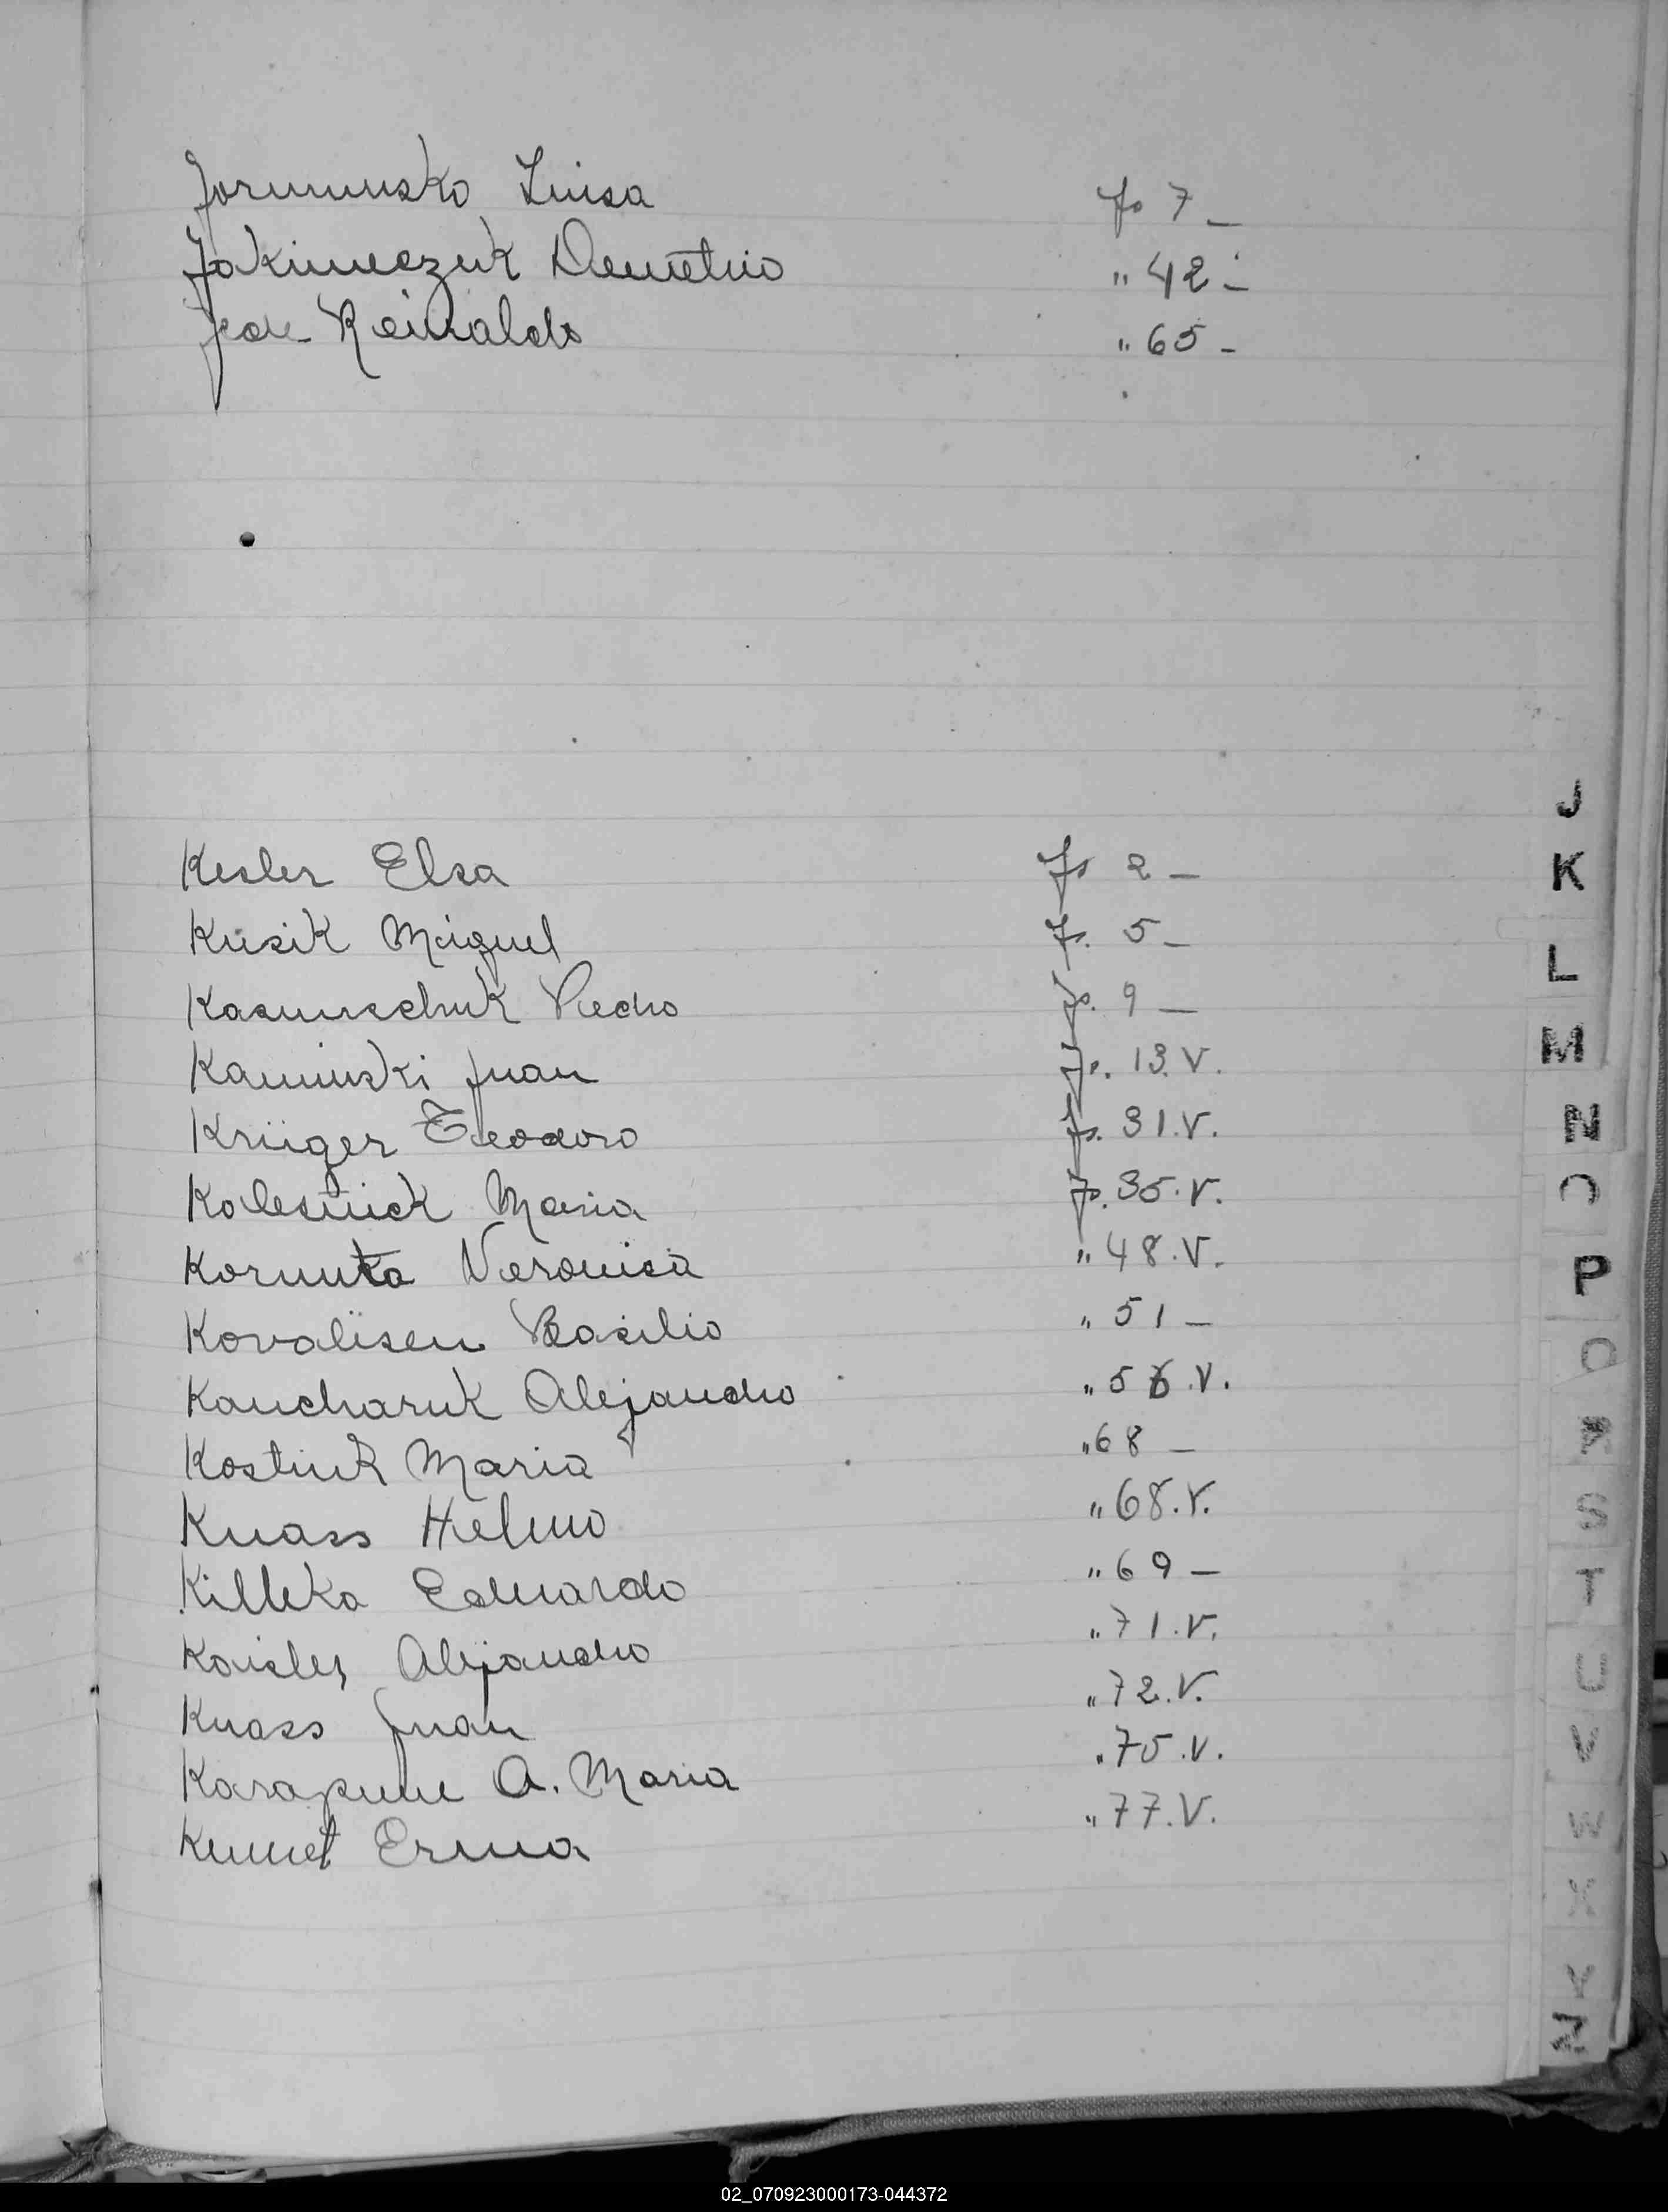 Luisa fs 7 _
Jakimeczuk Demetrio " 42 _
Jede Reinaldo " 65 _
Kesler Elsa fs 2 _
Kusik Miguel fs. 5 _
Kasumschuk Pedro fs. 9 _
Kaminski Juan fs. 13.V.
Krüger Teodoro fs. 31.V.
Kolesnick Maria fs. 35.V.
Kornuta Veronica " 48.V.
Kovalisen Basilio " 51 _
Kancharuk Alejandro " 56.V.
Kostiuk Maria " 68 _
Knass Helmo " 68.V.
Killka Eduardo " 69 _
Kaisler Alejandro " 71.V.
Knass Juan " 72.V.
A. Maria " 75.V.
Kumet Erma " 77.V.
J
K
L
M
N
O
P
Q
R
S
T
U
V
W
X
Y
Z
02_070923000173-044372